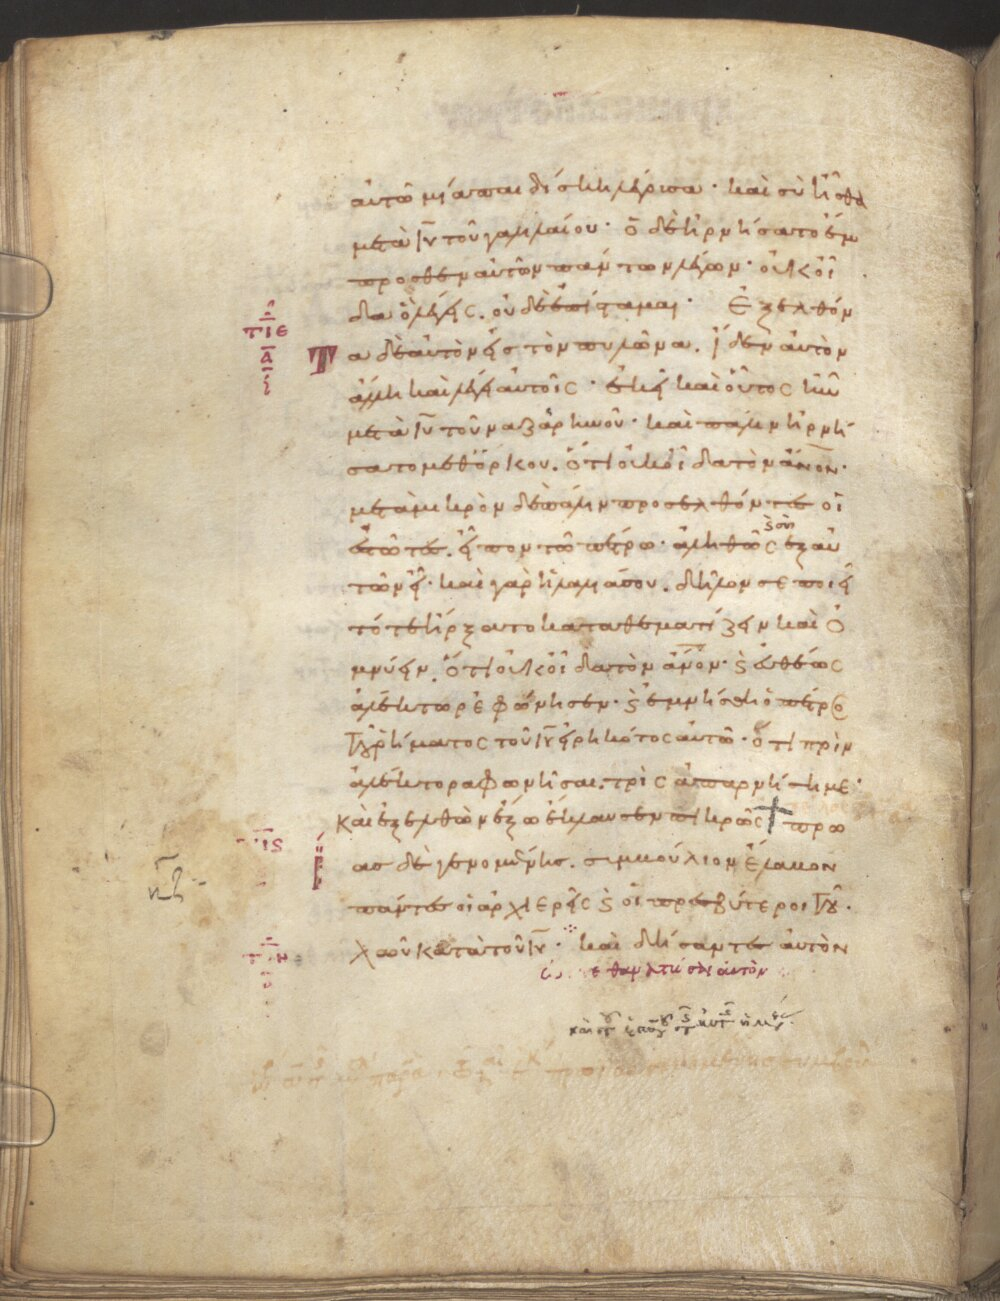 αὐτῶ μία παιδίσκη λέγουσα· καὶ σὺ ἦσθα
μετὰ ἰῦ τοῦ γαλιλαίου· ὁ δὲ ἠρνήσατο ἔμ
προσθεν αὐτῶν πάντων λέγων· οὐκ οἶ
δα ὃ λέγεις. οὐδὲ ἐπίσταμαι· Ἐξελθόν
τα δὲ αὐτὸν εἰς τὸν πυλῶνα. ἴδεν αὐτὸν
ἄλλη καὶ λέγει αὐτοῖς· ἐκεῖ καὶ οὗτος ἦν
μετὰ ἰῦ τοῦ ναζαρηνοῦ· καὶ πάλιν ἠρνή
σατο μεθόρκου. ὅτι οὐκ οἶδα τὸν ἄνον·
μετὰ μικρὸν δὲ πάλιν προσελθόντες οἱ
ἑστῶτες. εἶπον τῶ πέτρω· ἀληθῶς ἐξ αὐ
τῶν εἶ· καὶ γὰρ ἡ λαλιά σου. δῆλόν σε ποιεῖ
τότε ἤρξατο καταθεματίζειν καὶ ὀ
μνύειν. ὅτι οὐκ οἶδα τὸν ἄνον· ϗ εὐθέως
ἀλέκτωρ ἐφώνησεν· ϗ ἐμνήσθη ὁ πέτρος
τοῦ ῥήματος τοῦ ἰῦ εἰρηκότος αὐτῶ· ὅτι πρὶν
ἀλέκτορα φωνῆσαι. τρὶς ἀπαρνήση με·
καὶ ἐξελθὼν ἔξω ἔκλαυσεν πικρῶς † πρω
ας δὲ γενομένης. συμβούλιον ἔλαβον
πάντες οἱ ἀρχιερεῖς ϗ οἱ πρεσβύτεροι τοῦ
λαοῦ κατὰ τοῦ ἰῦ· καὶ δήσαντες αὐτὸν
θανατώσαι αὐτὸν